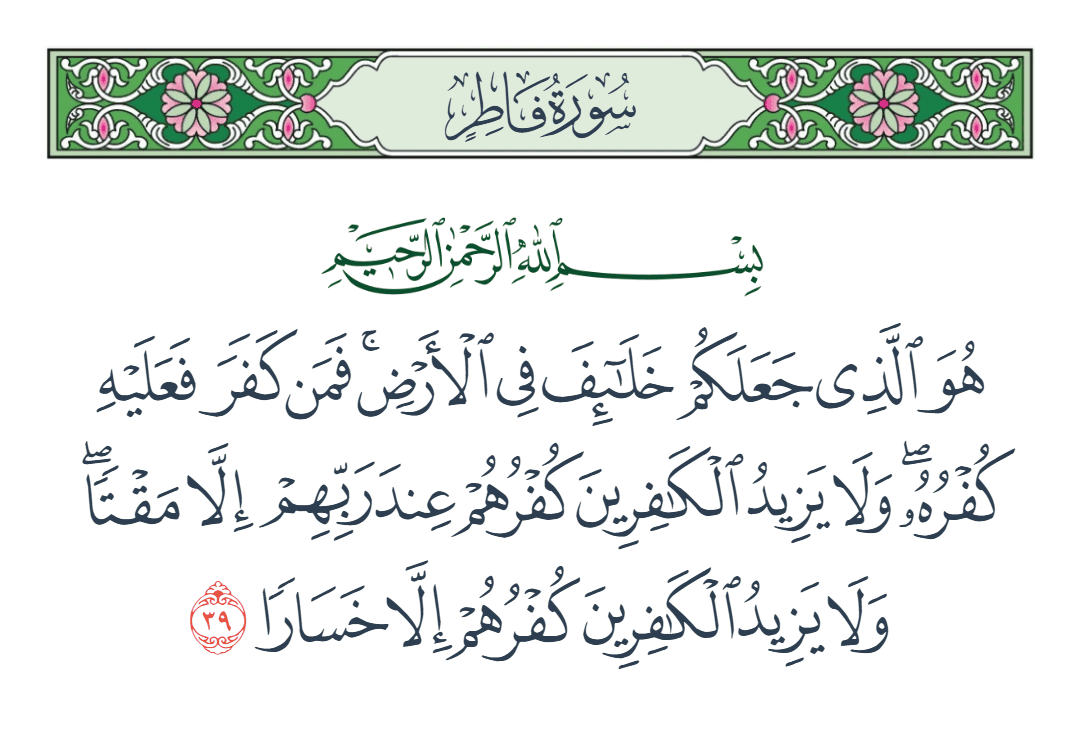 سُورَةُ فَاطِرٍ
بِسْمِ ٱللَّهِ ٱلرَّحْمَٰنِ ٱلرَّحِيمِ
هُوَ ٱلَّذِى جَعَلَكُمْ خَلَٰٓئِفَ فِى ٱلْأَرْضِ ۚ فَمَن كَفَرَ فَعَلَيْهِ
كُفْرُهُۥ ۖ وَلَا يَزِيدُ ٱلْكَٰفِرِينَ كُفْرُهُمْ عِندَ رَبِّهِمْ إِلَّا مَقْتًا ۖ
وَلَا يَزِيدُ ٱلْكَٰفِرِينَ كُفْرُهُمْ إِلَّا خَسَارًا ٣٩